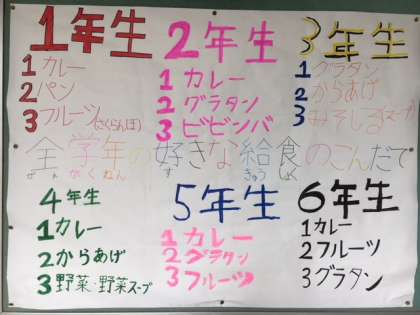 1年生
1カレー
2パン
3フルーツ(さくらんぼ)
2年生
1カレー
2グラタン
3ビビンバ
3年生
1グラタン
2からあげ
3みそしる(スープ)
全学年の好きな給食のこんだて
ぜん がくねん す きゅうしょく
4年生
1カレー
2からあげ
3野菜・野菜スープ
5年生
1カレー
2グラタン
3フルーツ
6年生
1カレー
2フルーツ
3グラタン